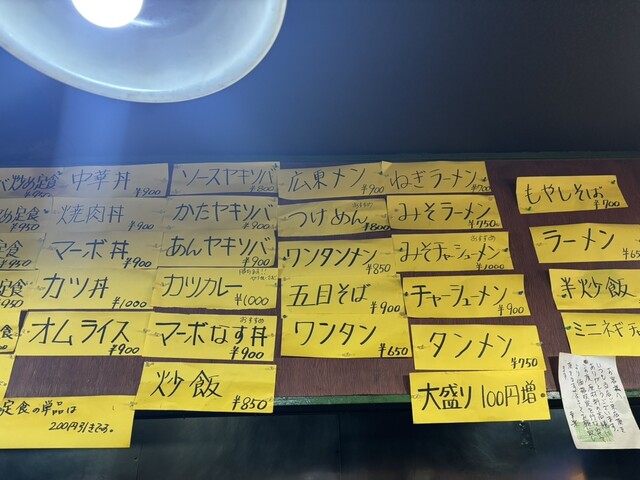 もやしそば ¥700
ラーメン
半炒飯
ミニネギチャ
ねぎラーメン ¥700
みそラーメン ¥750
おすすめ
みそチャーシューメン ¥1000
チャーシューメン ¥900
タンメン ¥750
大盛り 100円増
広東メン ¥900
おすすめ
つけめん ¥800
ワンタンメン ¥850
五目そば ¥900
ワンタン ¥650
ソースヤキソバ ¥800
かたヤキソバ ¥900
あんヤキソバ ¥900
カツカレー ¥1000
おすすめ
マーボなす丼 ¥900
炒飯 ¥850
中華丼 ¥900
焼肉丼 ¥900
マーボ丼 ¥900
カツ丼 ¥1000
オムライス ¥900
炒め定食 ¥950
定食 ¥950
定食 ¥950
定食 ¥950
定食の単品は
200円引きです。